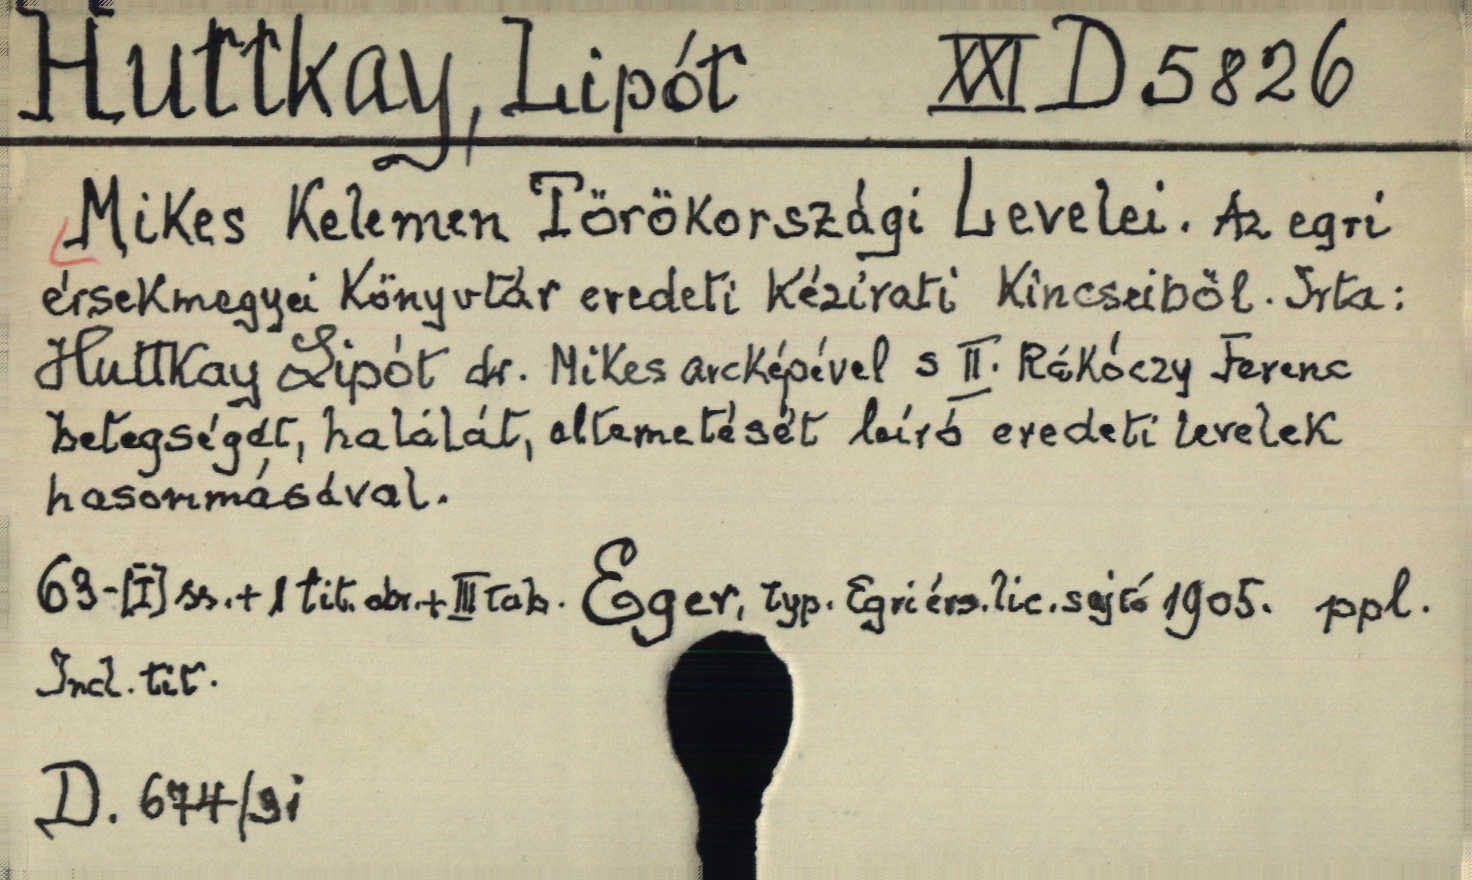 Huttkay, Lipót XXI D 5826
Mikes Kelemen Törökországi Levelei. Az egri
érsekmegyei Könyvtár eredeti Kézirati Kincseiből. Irta:
Huttkay Lipót dr. Mikes arcképével s II. Rákóczy Ferenc
betegségét, halálát, eltemetését leíró eredeti levelek
hasonmásával.
63-[I] ss.+1 tit. obr.+III tab. Eger, typ. Egri érs. lic. sajtó 1905. ppl.
Incl. tit.
D. 674/9i